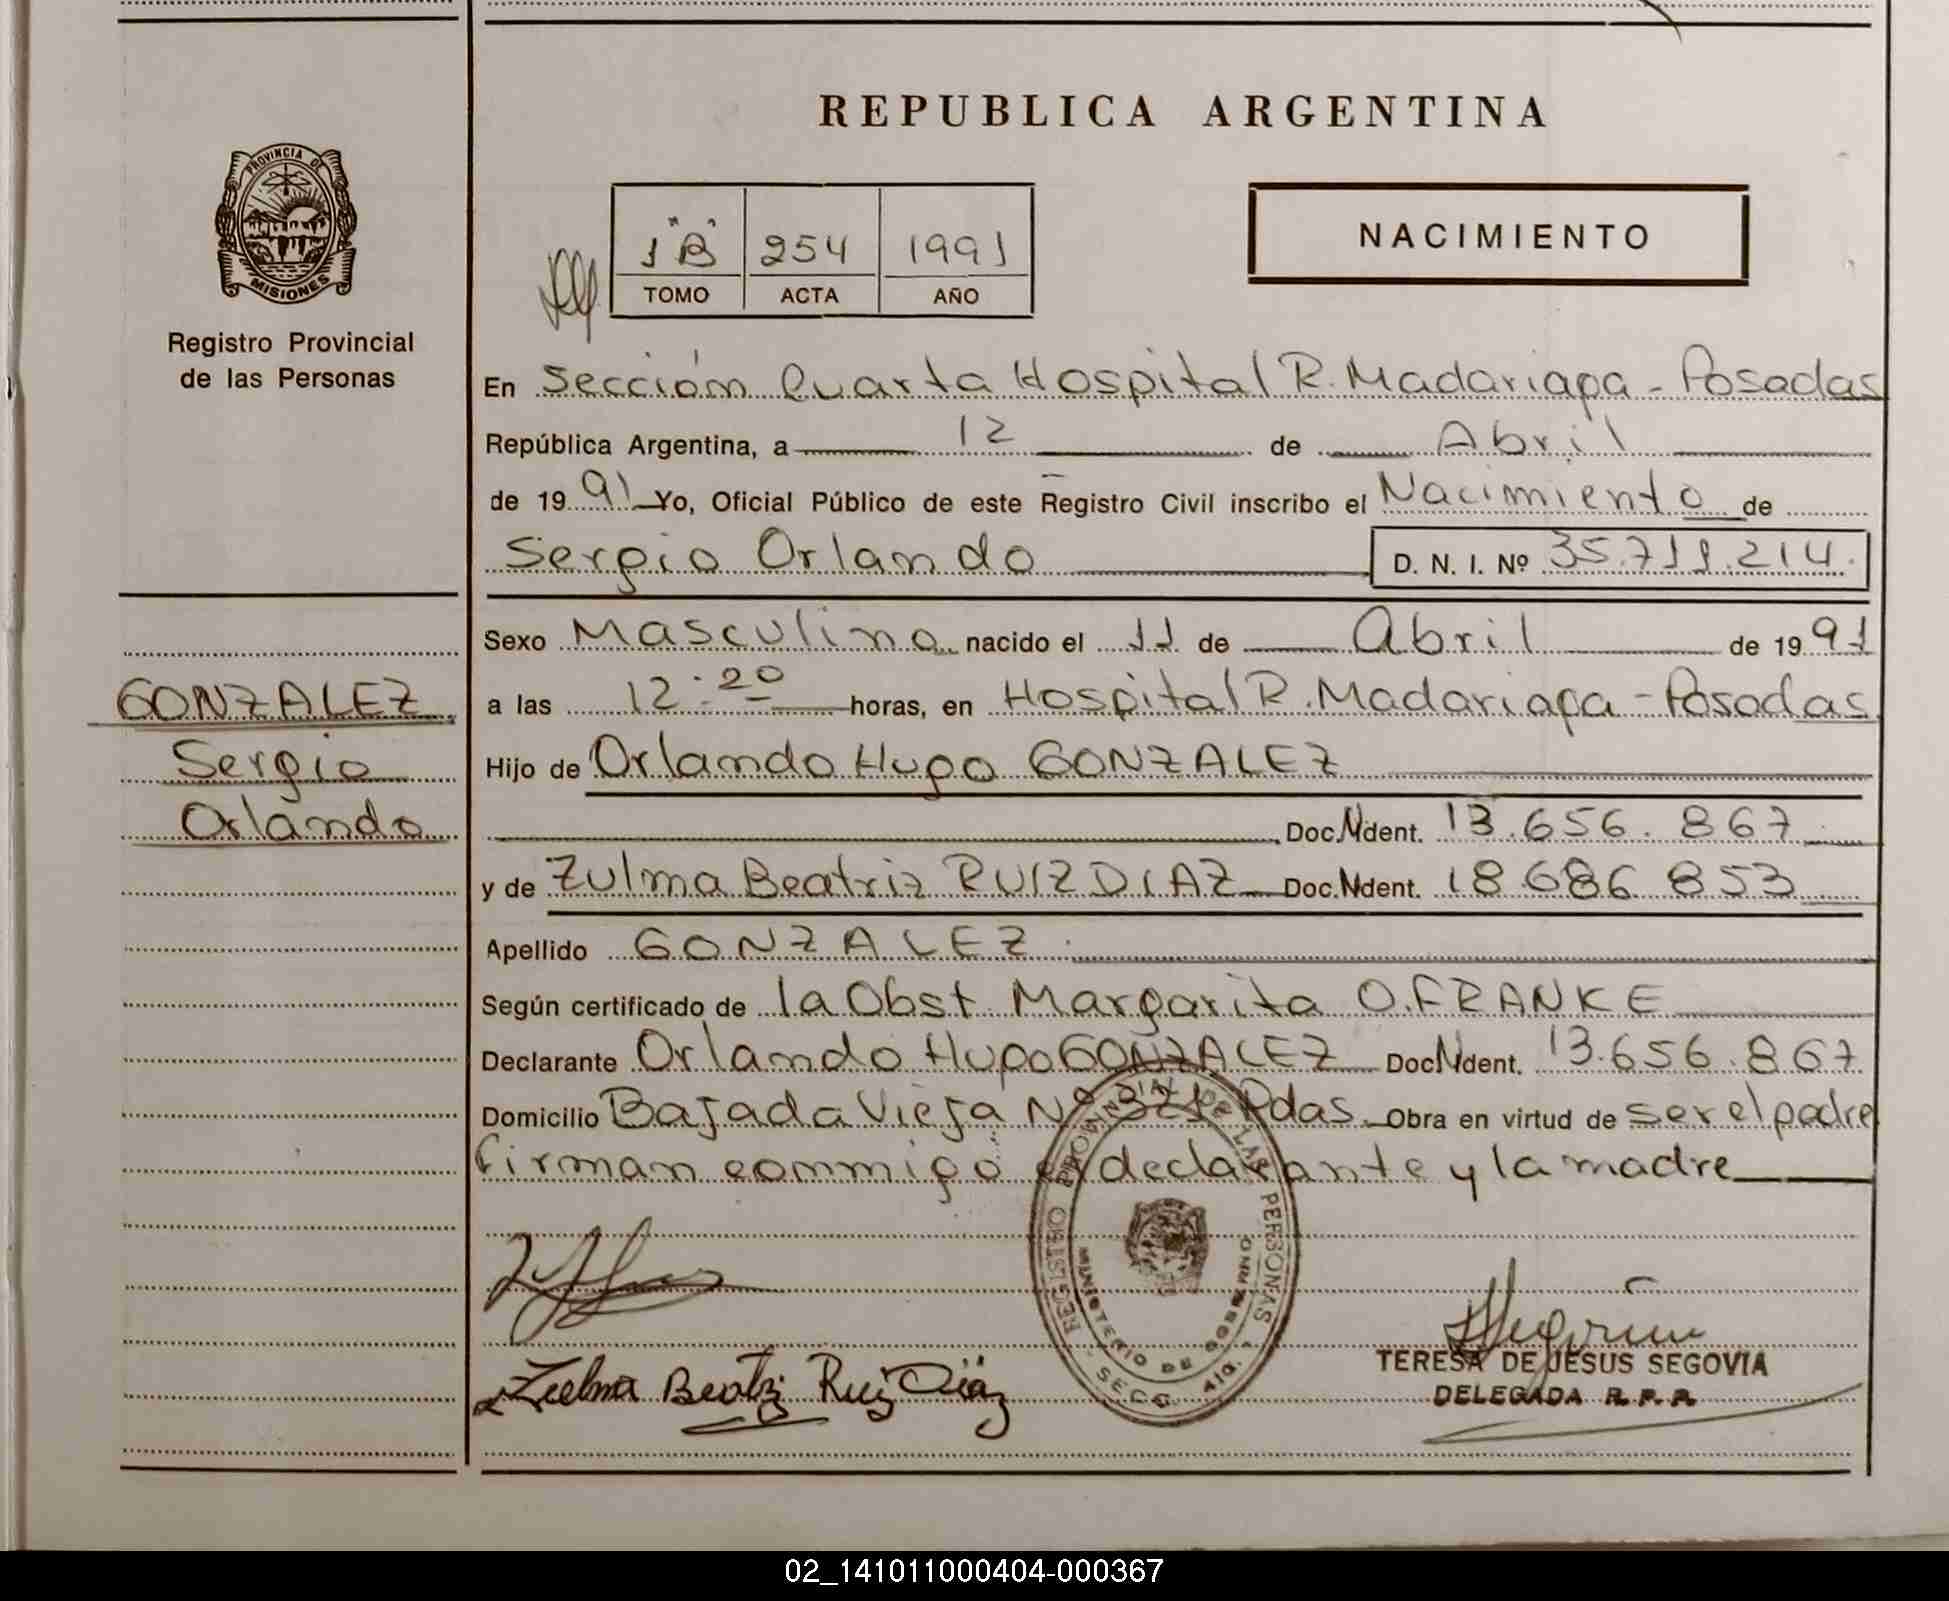 REPUBLICA ARGENTINA
PROVINCIA DE
MISIONES
Registro Provincial
de las Personas
1 "B" 254 1991
TOMO ACTA AÑO
NACIMIENTO
En Sección Cuarta Hospital R. Madariaga - Posadas
República Argentina, a 12 de Abril
de 1991 Yo, Oficial Público de este Registro Civil inscribo el Nacimiento de
Sergio Orlando D. N. I. Nº 35.711.214.
Sexo Masculino nacido el 11 de Abril de 1991
a las 12:20 horas, en Hospital R. Madariaga - Posadas
Hijo de Orlando Hugo GONZALEZ
Doc.Ndent. 13.656.867
y de Zulma Beatriz RUIZ DIAZ Doc.Ndent. 18.686.853
Apellido GONZALEZ.
Según certificado de la Obst. Margarita O. FRANKE
Declarante Orlando Hugo GONZALEZ Doc.Ndent. 13.656.867
Domicilio Bajada Vieja Nº 321 Pdas. Obra en virtud de ser el padre
firman conmigo el declarante y la madre
GONZALEZ
Sergio
Orlando
REGISTRO PROVINCIAL DE LAS PERSONAS
MINISTERIO DE GOBIERNO
SECC. 4ta.
Zulma Beatriz Ruiz Díaz
TERESA DE JESUS SEGOVIA
DELEGADA R. P. P.
02_141011000404-000367